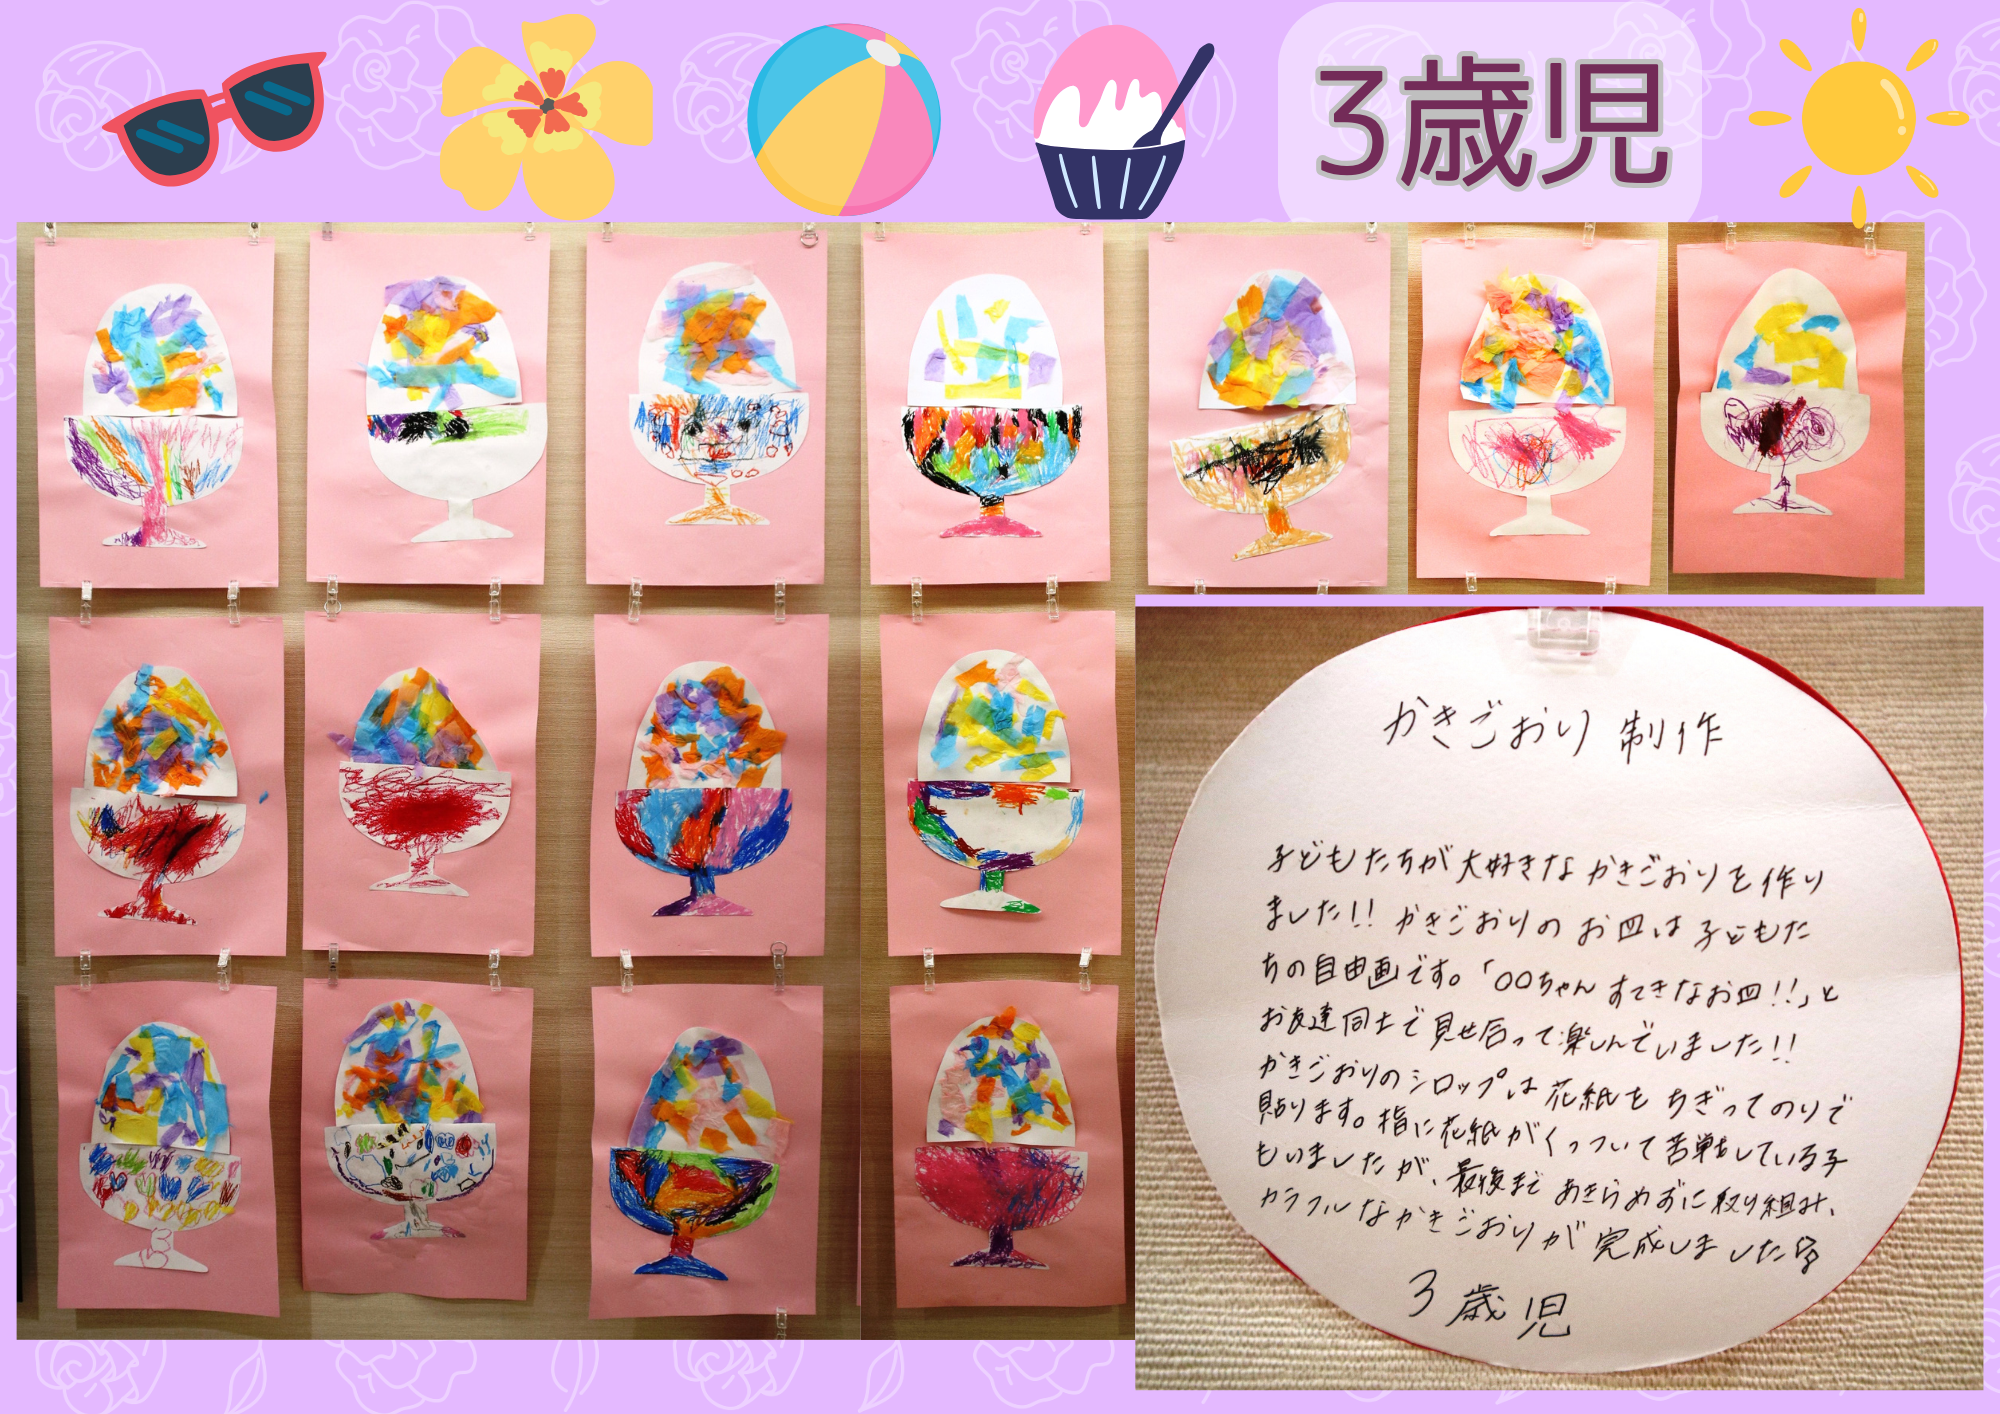 3歳児
かきごおり 制作
子どもたちが大好きなかきごおりを作り
ました!! かきごおりの お皿は 子どもた
ちの自由画です。「〇〇ちゃん すてきなお皿!!」と
お友達同士で見せ合って楽しんでいました!!
かきごおりのシロップは 花紙を ちぎってのりで
貼ります。指に花紙がくっついて苦戦している子
もいましたが、最後まで あきらめずに取り組み、
カラフルなかきごおりが 完成しました
3歳児